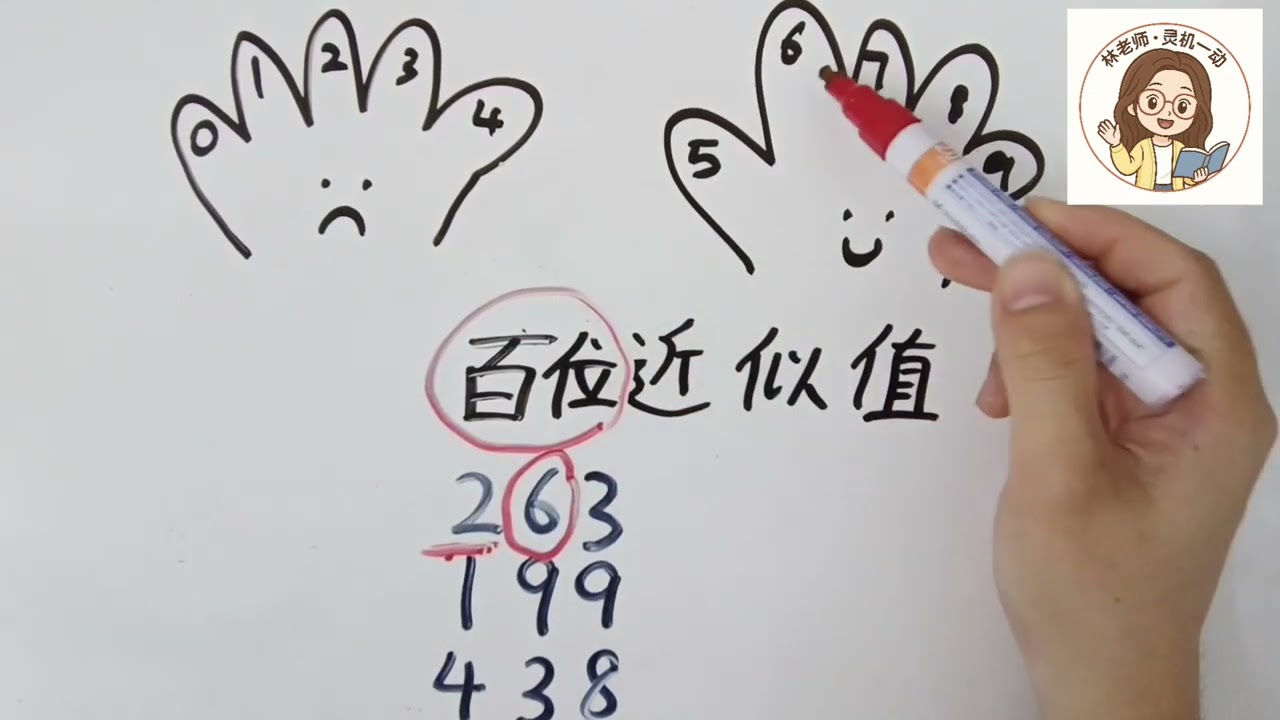 0 1 2 3 4
5 6 7 8 9
林老师·灵机一动
百位近似值
263
199
438